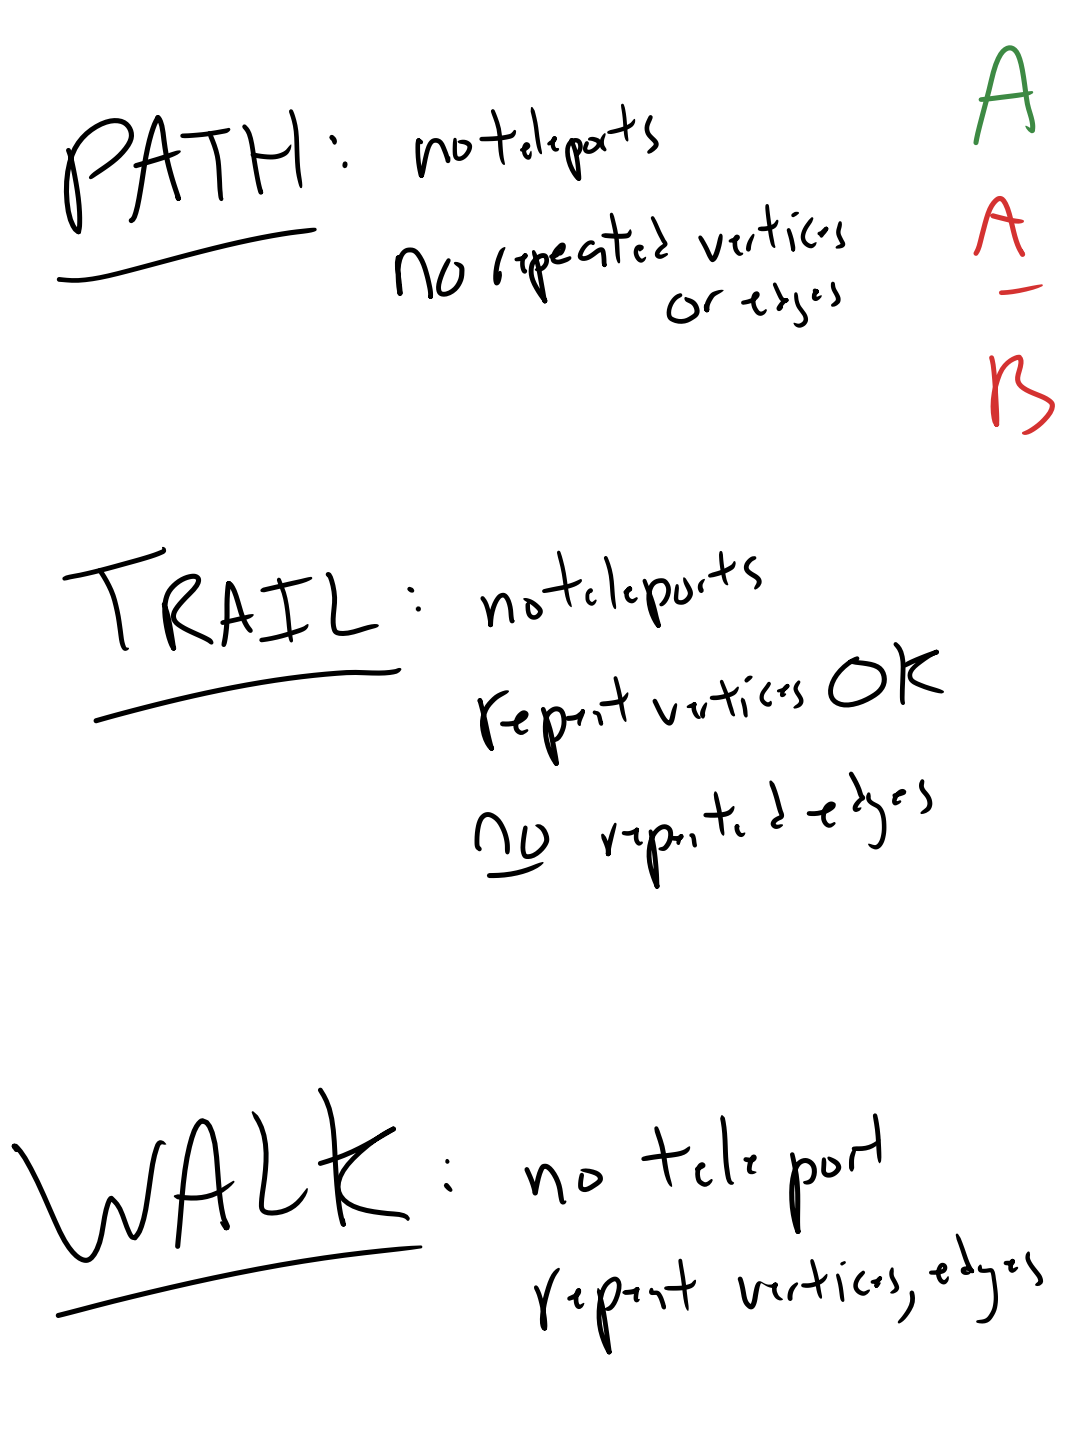 PATH: no teleports
no repeated vertices
or edges
A
A
B
TRAIL: no teleports
repeat vertices OK
no repeated edges
WALK: no teleport
repeat vertices, edges